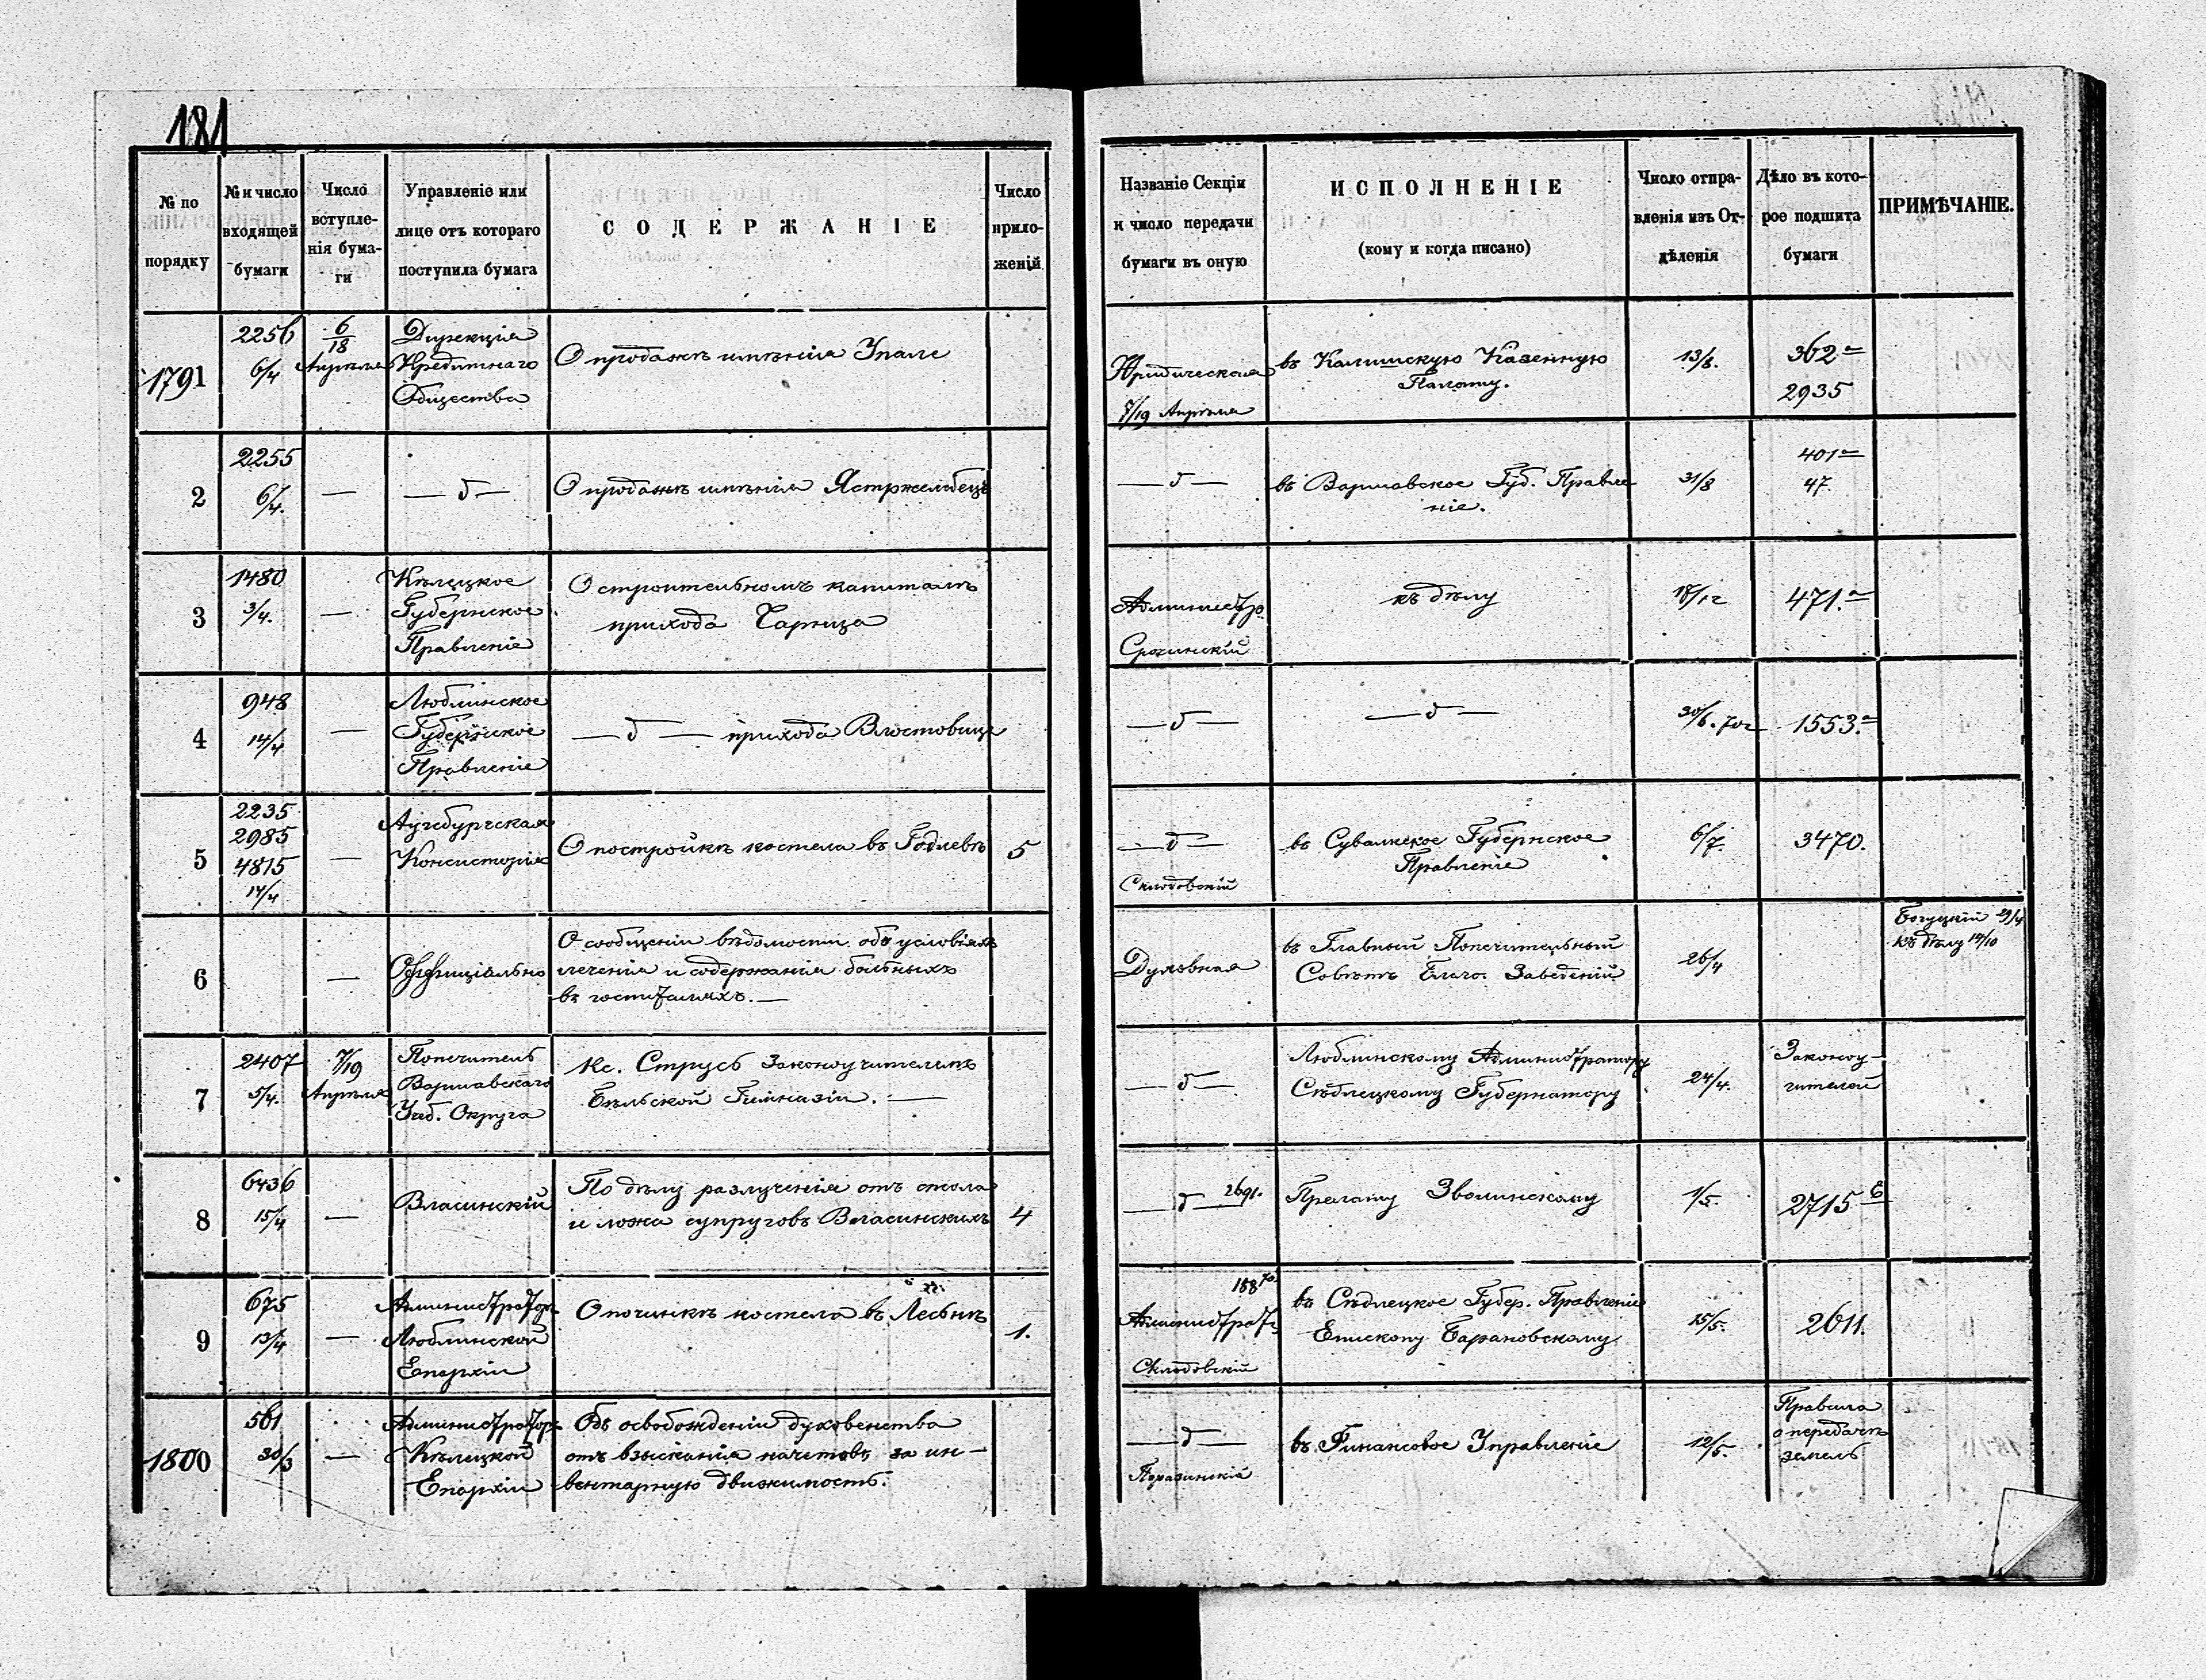 181
№ по порядку
№ и число входящей бумаги
Число вступле-нія бума-ги
Управленіе или лице отъ котораго поступила бумага
СОДЕРЖАНІЕ
Число прило-женій
Названіе Секціи и число передачи бумаги въ оную
ИСПОЛНЕНІЕ
(кому и когда писано)
Число отпра-вленія изъ От-дѣленія
Дѣло въ кото-рое подшита бумаги
ПРИМѢЧАНІЕ.
1791
2256
6/4
6/18
Апрѣля
Дирекція
Кредитнаго
Общества
О продажѣ имѣнія Упале
Юридическая
7/19 Апрѣля
въ Калишскую Казенную
Палату.
13/8.
362 а
2935
2
2255
6/4.
—
— д —
О продажѣ имѣнія Ястржембецъ
— д —
въ Варшавское Губ. Правле
ніе.
31/8
401 а
47.
3
1480
3/4.
—
Кѣлецкое
Губернское
Правленіе
О строительномъ капиталѣ
прихода Чарнца
Администр.
Срочинскій
къ дѣлу
18/12
471. а
4
948
14/4
—
Люблинское
Губернское
Правленіе
— д — прихода Влостовице
— д —
— д —
30/6. 70 г
1553. а
5
2235
2985
4815
14/4
—
Аугсбургская
Консисторія
О постройкѣ костела въ Годлевѣ
5
— д —
Склодовскій
въ Сувалкское Губернское
Правленіе
6/7.
3470.
6
—
Оффиціально
О сообщеніи вѣдомости объ условіяхъ
леченія и содержанія больныхъ
въ госпиталяхъ. —
Духовная
въ Главный Попечительный
Совѣтъ Благо. Заведеній
26/4
Богуцкій 29/4
къ дѣлу 14/10
7
2407
5/4.
7/19
Апрѣля
Попечитель
Варшавскаго
Учеб. Округа
Кс. Струсъ Законоучителемъ
Бѣльской Гимназіи. —
— д —
Люблинскому Администратору
Сѣдлецкому Губернатору
24/4.
Законоу-
чителей
8
6436
15/4
—
Власинскій
По дѣлу разлученія отъ стола
и ложа супруговъ Власинскихъ
4
— д — 2691.
Прелату Зволинскому
1/5.
2715 б
9
675
13/4
—
Администратор
Люблинской
Епархіи
О починкѣ костела въ Лесьнѣ
1.
188 70
Администрат.
Склодовскій
въ Сѣдлецкое Губер. Правленіе
Епископу Барановскому
15/5.
2611.
1800
561
30/3
—
Администратор
Кѣлецкой
Епархіи
Объ освобожденіи духовенства
отъ взысканія начетовъ за ин-
вентарную движимость.
— д —
въ Финансовое Управленіе
12/5.
Правила
о передачѣ
земель